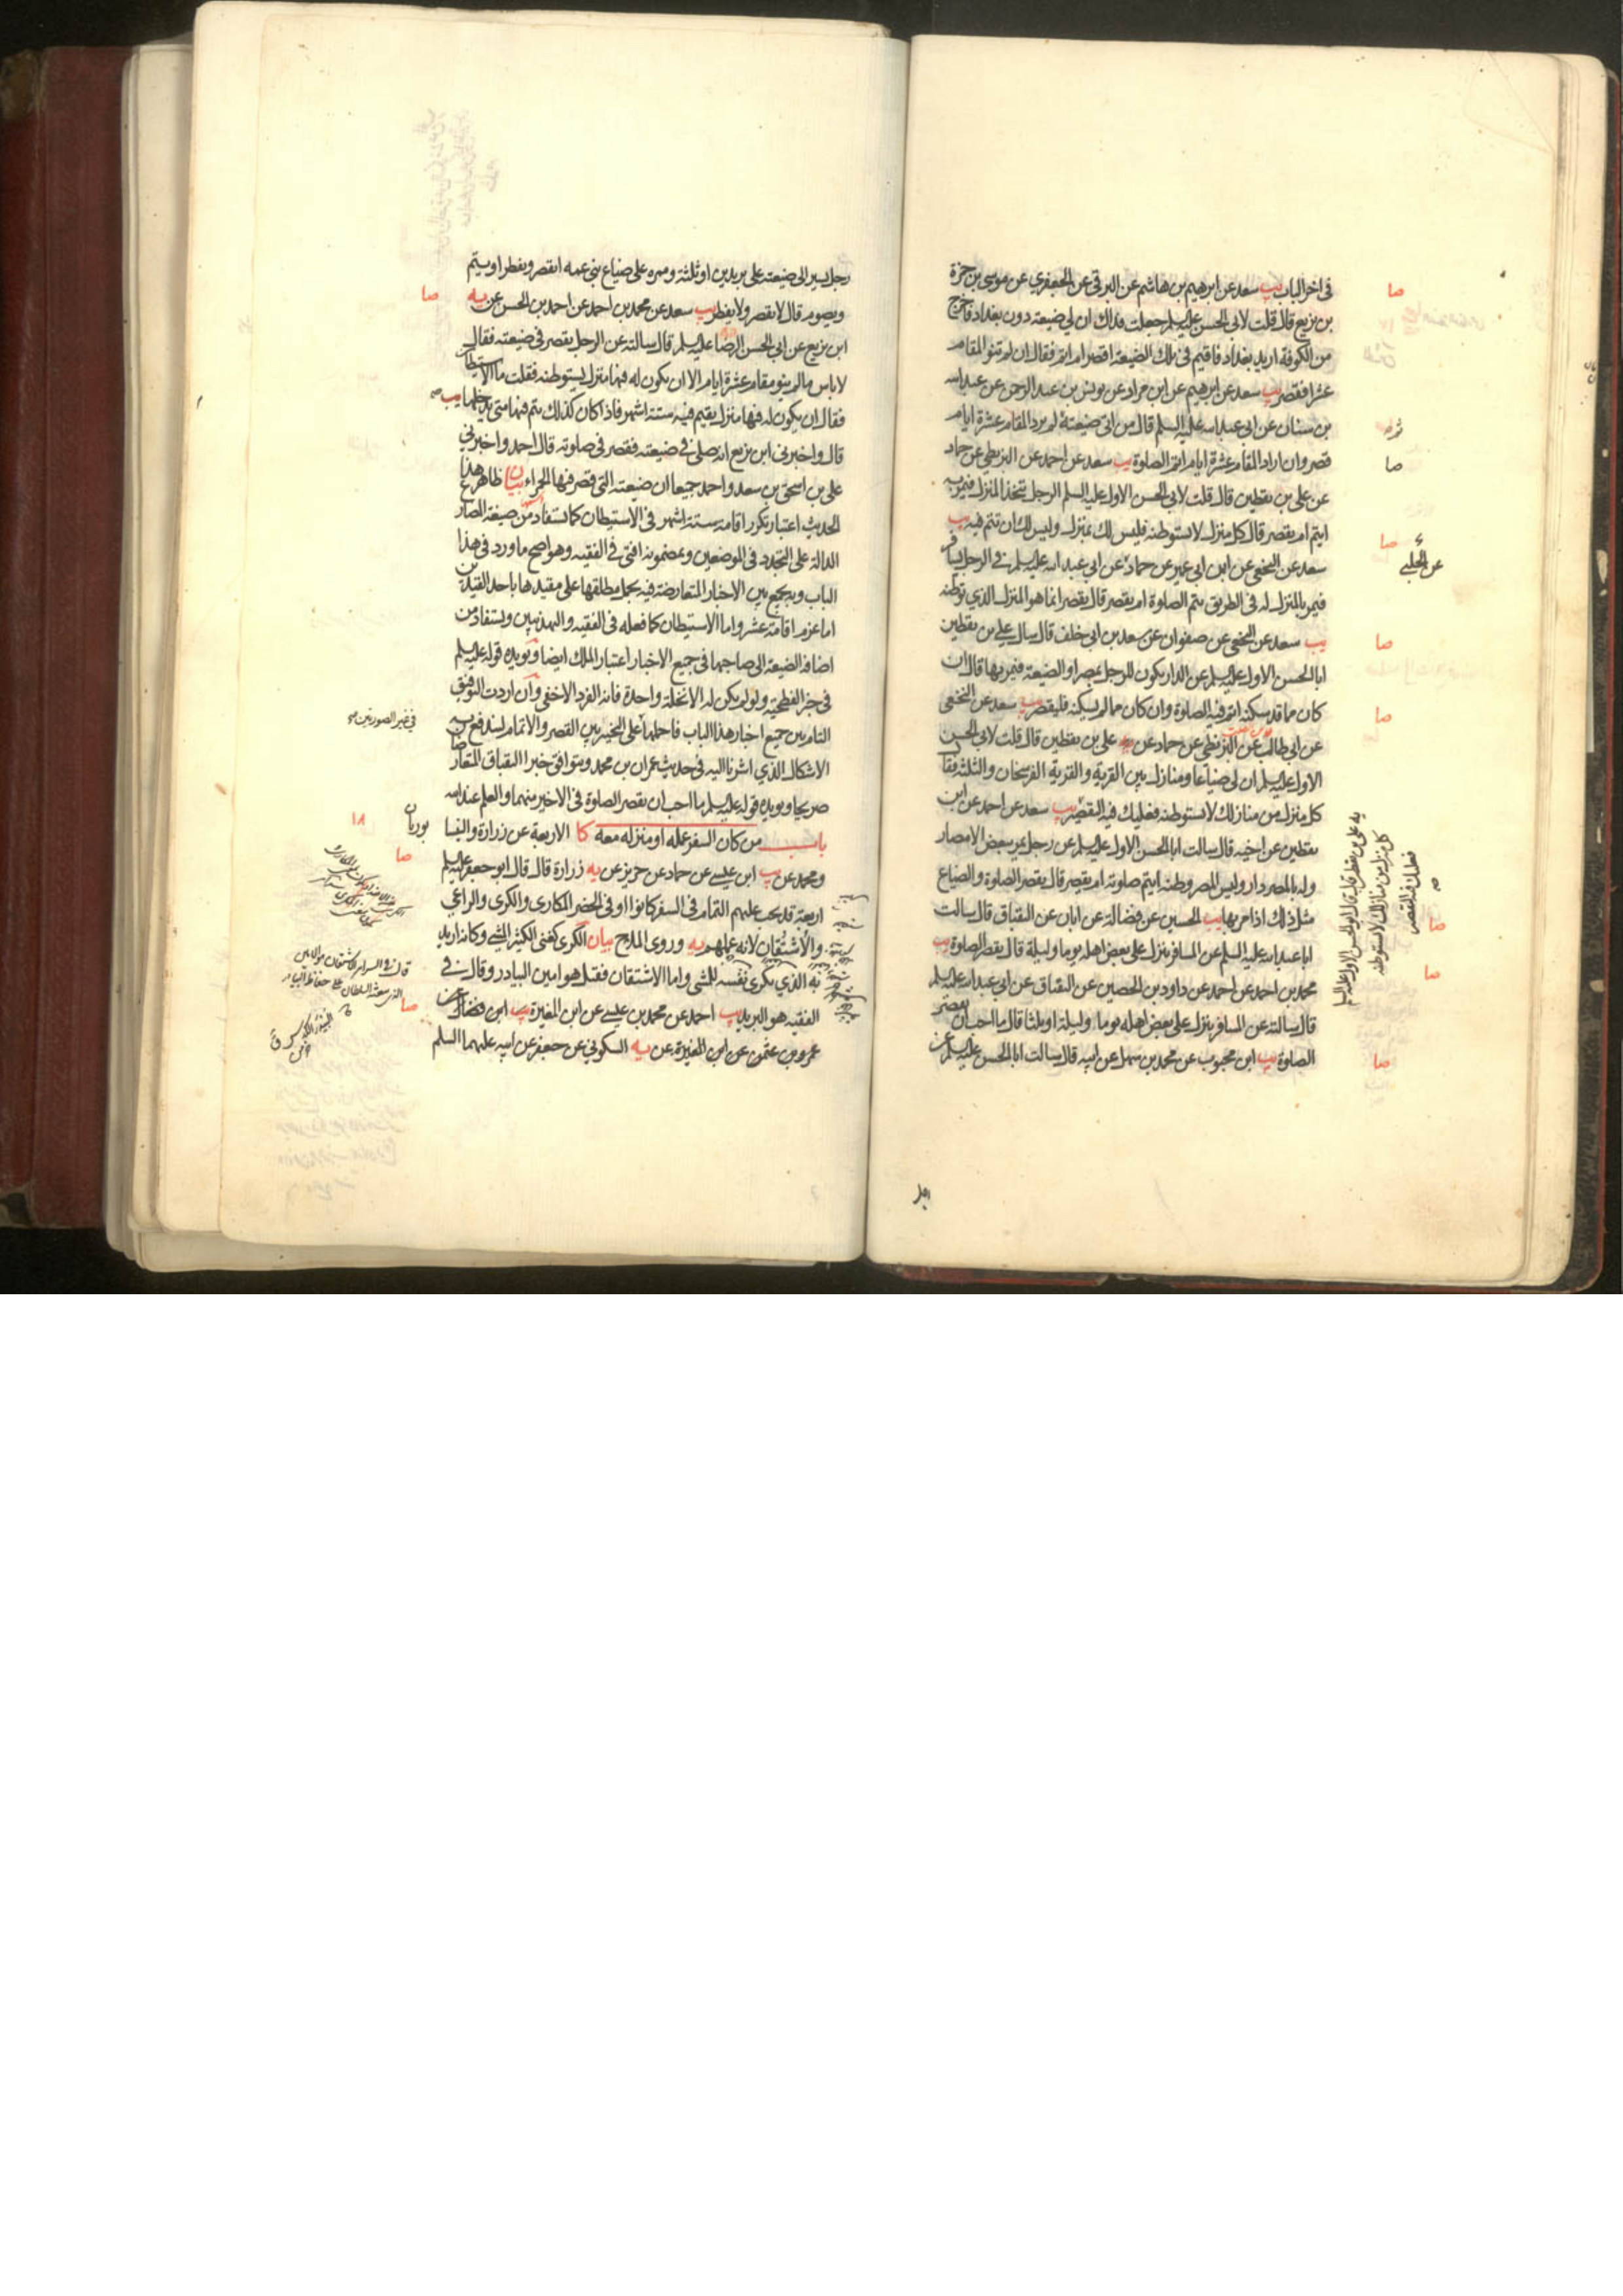 في اخر الباب يب سعد عن ابرهيم بن هاشم عن البرقي عن الجعفري عن موسى بن حمزة
بن بزيع قال قلت لابي الحسن عليه السلم جعلت فداك ان لي ضيعة دون بغداد فاخرج
من الكوفة اريد بغداد فاقيم في تلك الضيعة اقصر ام اتم فقال ان لم تنو المقام
عشرا فقصر يب سعد عن ابرهيم عن ابن مرار عن يونس بن عبد الرحمن عن عبد الله
بن سنان عن ابي عبد الله عليه السلم قال من اتى ضيعته ثم لم يرد المقام عشرة ايام
قصر وان اراد المقام عشرة ايام اتم الصلوة يب سعد عن احمد عن البزنطي عن حماد
عن علي بن يقطين قال قلت لابي الحسن الاول عليه السلم الرجل يتخذ المنزل فيمر به
ايتم ام يقصر قال كل منزل لا تستوطنه فليس لك بمنزل وليس لك ان تتم فيه يب
سعد عن النخعي عن ابن ابي عمير عن حماد عن ابي عبد الله عليه السلم في الرجل يسافر
فيمر بالمنزل له في الطريق يتم الصلوة ام يقصر قال يقصر انما هو المنزل الذي توطنه
يب سعد عن النخعي عن صفوان عن سعد بن ابي خلف قال سال علي بن يقطين
ابا الحسن الاول عليه السلم عن الدار يكون للرجل بمصر او الضيعة فيمر بها قال ان
كان مما قد سكنه اتم فيه الصلوة وان كان مما لم يسكنه فليقصر يب سعد عن النخعي
عن ابي طالب عن البزنطي عن حماد عن علي بن يقطين قال قلت لابي الحسن
الاول عليه السلم ان لي ضياعا ومنازل بين القرية والقرية الفرسخان والثلثة فقال
كل منزل من منازلك لا تستوطنه فعليك فيه التقصير يب سعد عن احمد عن ابن
يقطين عن اخيه قال سالت ابا الحسن الاول عليه السلم عن رجل يمر ببعض الامصار
وله بالمصر دار وليس المصر وطنه ايتم صلوته ام يقصر قال يقصر الصلوة والضياع
مثل ذلك اذا مر بها يب الحسين عن فضالة عن ابان عن البقباق قال سالت
ابا عبد الله عليه السلم عن المسافر ينزل على بعض اهله يوما وليلة قال يقصر الصلوة يب
محمد بن احمد عن احمد عن داود بن الحصين عن البقباق عن ابي عبد الله عليه السلم
قال سالته عن المسافر ينزل على بعض اهله يوما وليلة او ثلثا قال ما احب ان يقصر
الصلوة يب ابن محبوب عن محمد بن سهل عن ابيه قال سالت ابا الحسن عليه السلم عن
صا
صا
عن الحلبي
صا
صا
صا
صا
صا
صا
كل منزل من منازلك لا تستوطنه
فعليك فيه التقصير
رجل يسير الى ضيعته على بريدين او ثلثة وممره على ضياع بني عمه ايقصر ويفطر او يتم
ويصوم قال لا يقصر ولا يفطر يب سعد عن محمد بن احمد عن احمد بن الحسن عن يه
ابن بزيع عن ابي الحسن الرضا عليه السلم قال سالته عن الرجل يقصر في ضيعته فقال
لا باس ما لم ينو مقام عشرة ايام الا ان يكون له فيها منزل يستوطنه فقلت ما الاستيطان
فقال ان يكون له فيها منزل يقيم فيه ستة اشهر فاذا كان كذلك يتم فيها متى يدخلها يب
قال واخبرني ابن بزيع انه صلى في ضيعته فقصر في صلوته قال احمد واخبرني
علي بن اسحق بن سعد واحمد جميعا ان ضيعته التي قصر فيها الحمراء بيان ظاهر هذا
الحديث اعتبار تكرر اقامة ستة اشهر في الاستيطان كما يستفاد من صيغة المضارع
الدالة على التجدد في الموضعين وبمضمونه افتى في الفقيه وهو اصح ما ورد في هذا
الباب وبه يجمع بين الاخبار المتعارضة فيه بحمل مطلقها على مقيدها باحد القيدين
اما عزم اقامة عشر واما الاستيطان كما فعله في الفقيه والتهذيبين ويستفاد من
اضافة الضيعة الى صاحبها في جميع الاخبار اعتبار الملك ايضا ويؤيده قوله عليه السلم
في خبر الفطحية ولو لم يكن له الا نخلة واحدة فانه الفرد الاخفى وان اردت التوفيق
التام بين جميع اخبار هذا الباب فاحملها على التخيير بين القصر والاتمام ليندفع به
الاشكال الذي اشرنا اليه في حديث عمران بن محمد ويتوافق خبرا البقباق المتعارضان
صريحا ويؤيده قوله عليه السلم ما احب ان يقصر الصلوة في الاخير منهما والعلم عند الله
باب من كان السفر عمله او منزله معه كا الاربعة عن زرارة والنيسا
بوريان
ومحمد عن يب ابن عيسى عن حماد عن حريز عن يه زرارة قال قال ابو جعفر عليه السلم
اربعة قد يجب عليهم التمام في السفر كانوا او في الحضر المكاري والكري والراعي
والاشتقان لانه عملهم يه وروى الملاح بيان الكري كغني الكثير المشي وكانه اريد
به الذي يكري نفسه للمشي واما الاشتقان فقيل هو امين البيادر وقال في
الفقيه هو البريد يب احمد عن محمد بن عيسى عن ابن المغيرة يب ابن فضال عن
عمرو بن عثمن عن ابن المغيرة عن يه السكوني عن جعفر عن ابيه عليهما السلم
صا
في غير الصورتين
١٨
صا
صا